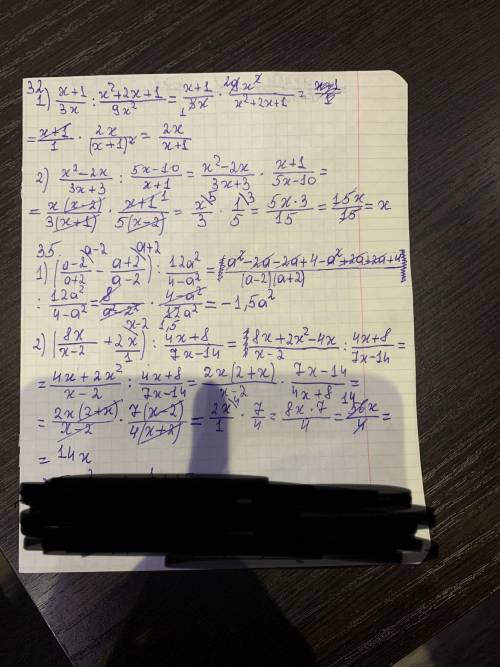 32
1) (x+1)/(3x) : (x²+2x+1)/(9x²) = (x+1)/(3x) · 9x²/(x²+2x+1) =
= (x+1)/1 · 2x/(x+1)² = 2x/(x+1)
2) (x²-2x)/(3x+3) : (5x-10)/(x+1) = (x²-2x)/(3x+3) · (x+1)/(5x-10) =
= x(x-2)/(3(x+1)) · (x+1)/(5(x-2)) = x/3 · 1/5 = (5x·3)/15 = 15x/15 = x
35 a-2 a+2
1) ((a-2)/(a+2) - (a+2)/(a-2)) : 12a²/(4-a²) = (a²-2a-2a+4-a²+2a+2a+4)/((a-2)(a+2))
: 12a²/(4-a²) = · (4-a²)/(12a²) = -1,5a²
2) (8x/(x-2) + 2x/1) : (4x+8)/(7x-14) = (8x+2x²-4x)/(x-2) : (4x+8)/(7x-14) =
= (4x+2x²)/(x-2) : (4x+8)/(7x-14) = 2x(2+x)/(x-2) · (7x-14)/(4x+8) =
= 2x(2+x)/(x-2) · 7(x-2)/(4(x+2)) = 2x/1 · 7/4 = (8x·7)/4 = 56x/4 =
= 14x